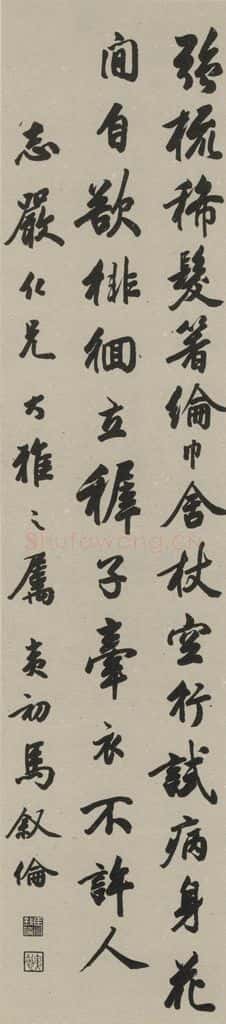 強梳稀髮著綸巾舍杖空行試病身花
間自欲徘徊立稺子牽衣不許人
志嚴仁兄大雅之屬 夷初馬敘倫
Shufawang.cn